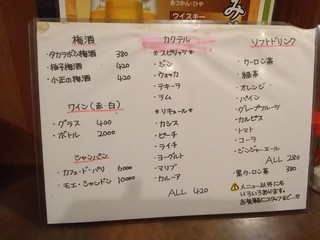 あつかん・ひや
ウイスキー
み
梅酒
・タカラがらり梅酒 380
・柚子梅酒 420
・小正の梅酒 420
ワイン（赤・白）
・グラス 400
・ボトル 2000
シャンパン
・カフェ・ド・パリ 6000
・モエ・シャンドン 10000
カクテル
＊スピリッツ＊
・ジン
・ウォッカ
・テキーラ
・ラム
＊リキュール＊
・カシス
・ピーチ
・ライチ
・ヨーグルト
・マリブ
・カルーア
ALL 420
ソフトドリンク
・ウーロン茶
・緑茶
・オレンジ
・パイン
・グレープフルーツ
・カルピス
・トマト
・コーラ
・ジンジャーエール
ALL 280
・黒ウーロン茶 380
メニュー以外にも
いろいろあります。
お気軽にスタッフまで…